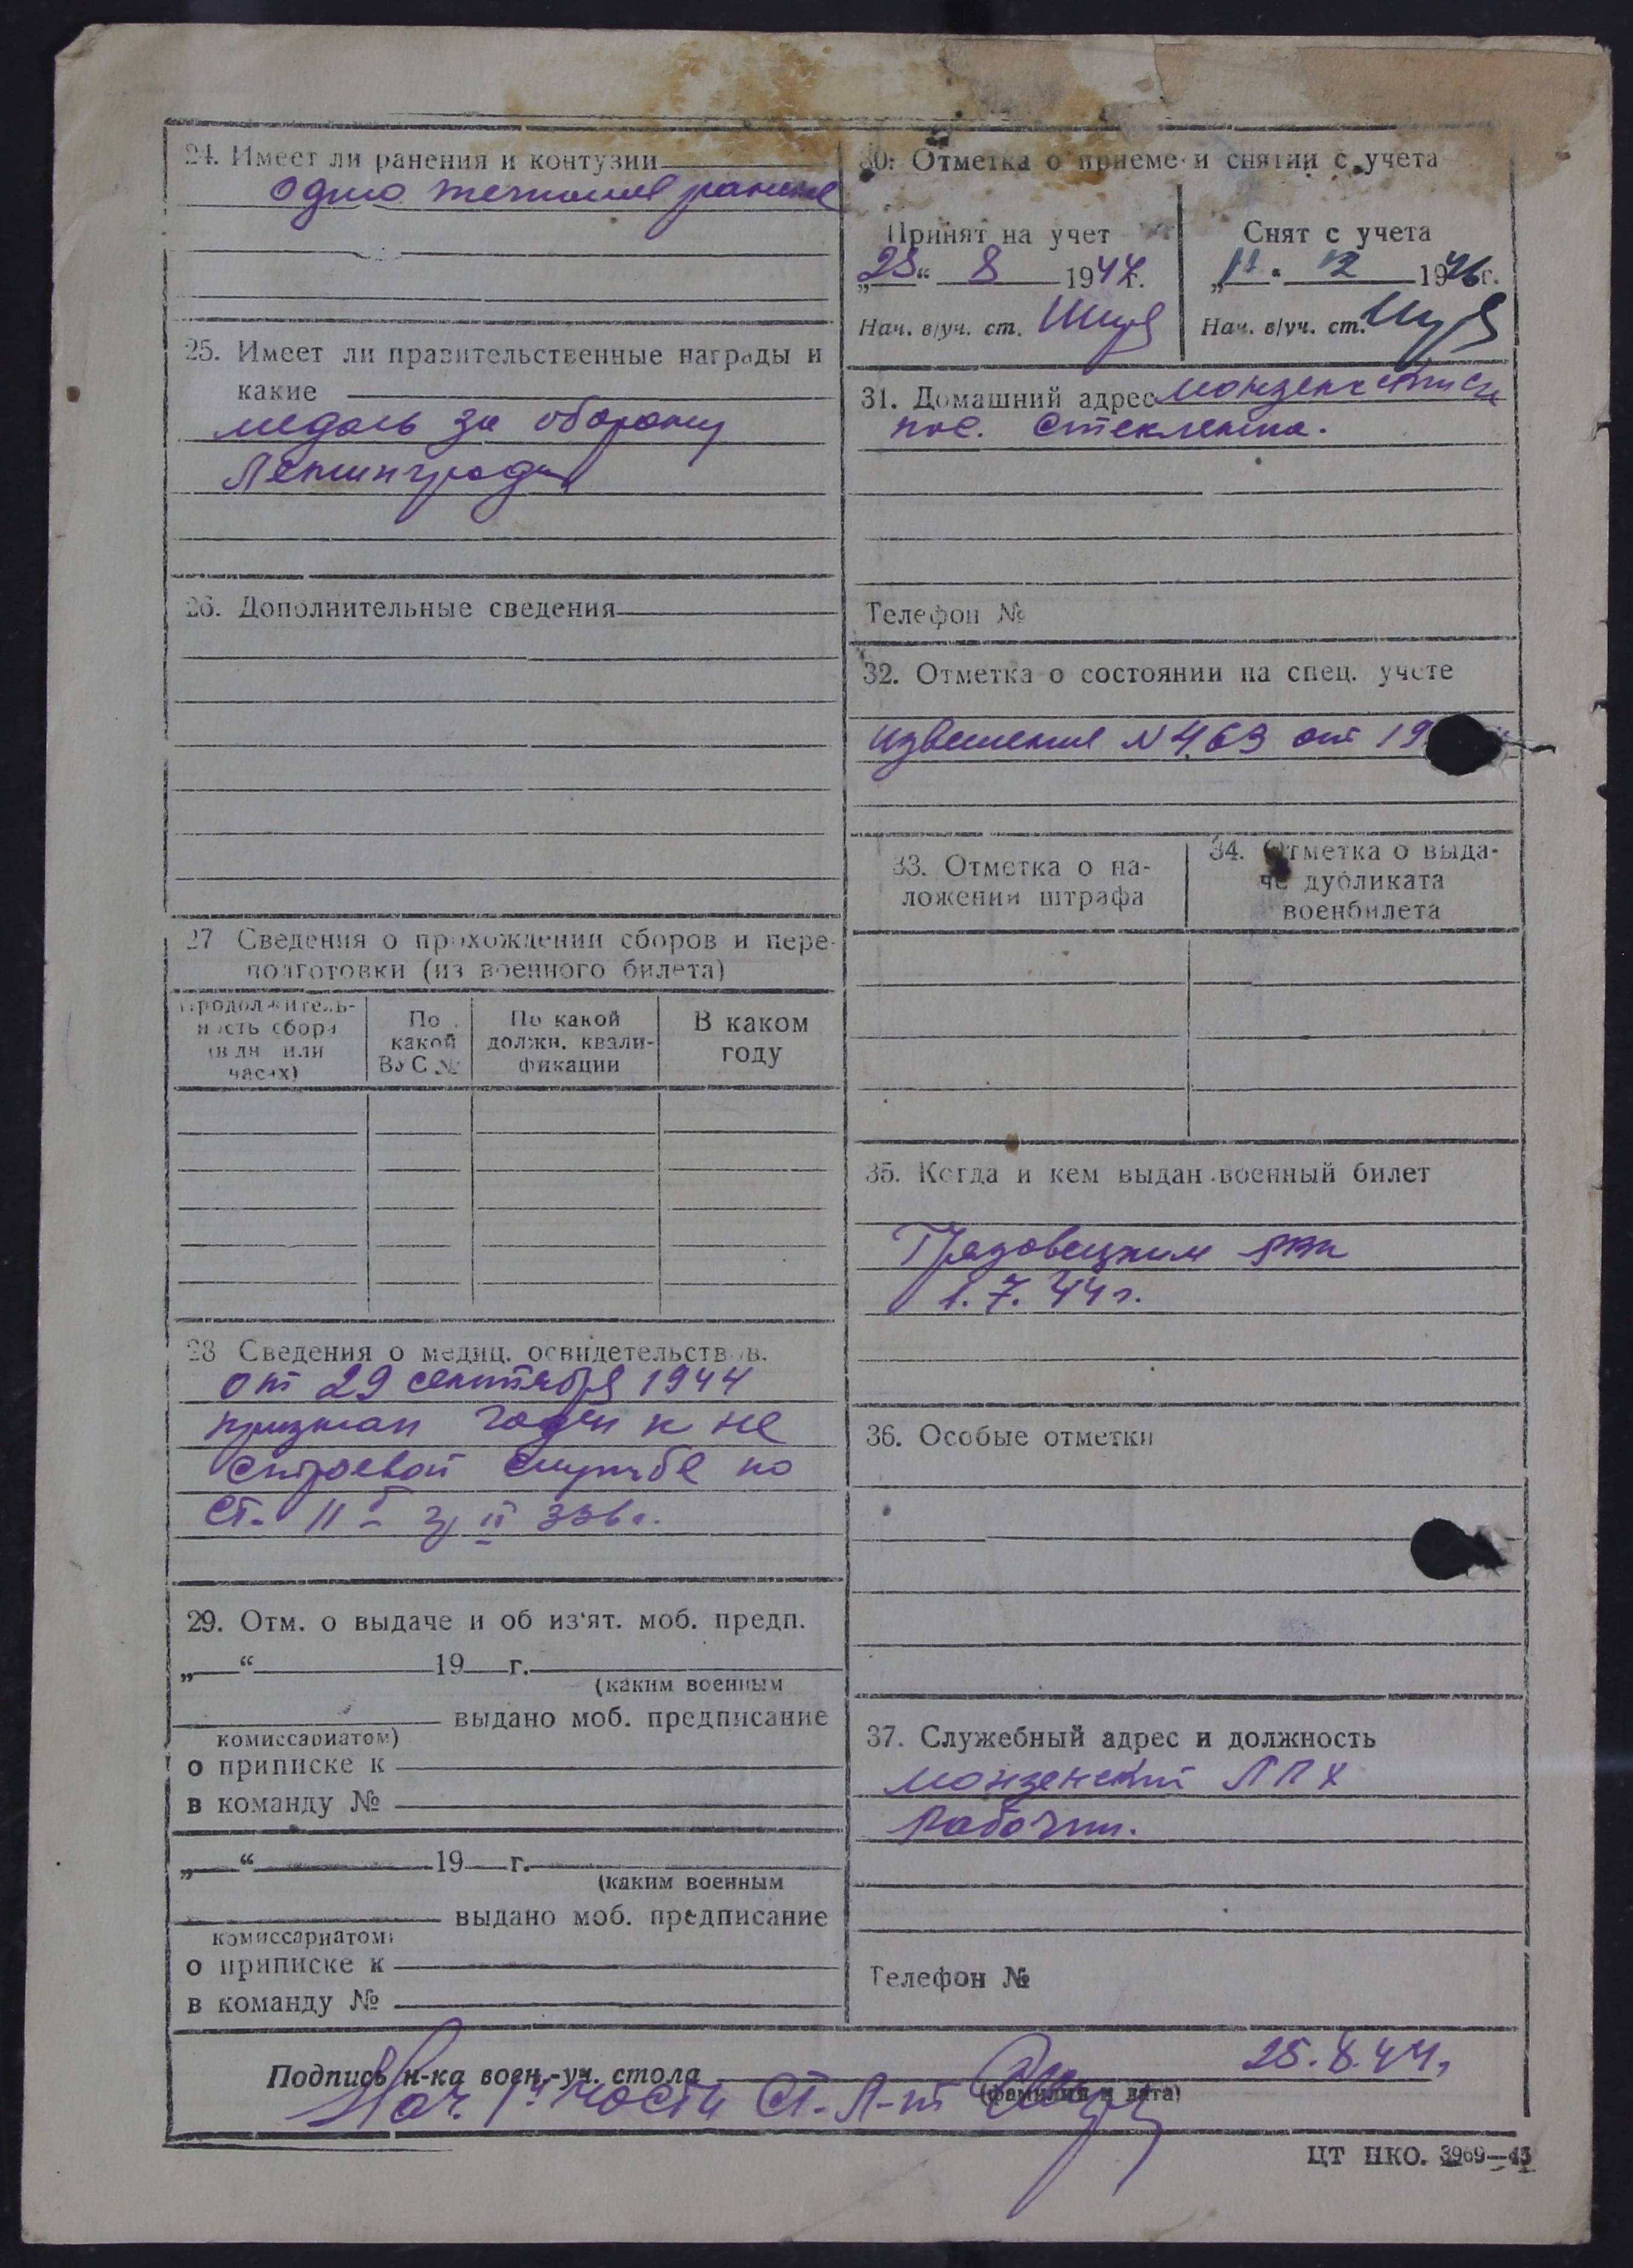 24. Имеет ли ранения и контузии
одно тяжолое ранение
25. Имеет ли правительственные награды и
какие
медаль за оборону
Ленинграда
26. Дополнительные сведения
27 Сведения о прохождении сборов и пере-
подготовки (из военного билета)
Продолжитель-
ность сбора
(в дн или
часах)
По
какой
ВУС №
По какой
должн. квали-
фикации
В каком
году
28 Сведения о медиц. освидетельствов.
от 29 сентября 1944
признан годен к не
строевой службе по
ст. II гр II 336 г.
29. Отм. о выдаче и об из'ят. моб. предп.
„ “ 19 г.
(каким военным
выдано моб. предписание
комиссариатом)
о приписке к
в команду №
„ “ 19 г.
(каким военным
выдано моб. предписание
комиссариатом)
о приписке к
в команду №
30. Отметка о приеме и снятии с учета
Принят на учет
„25“ 8 1944г.
Нач. в/уч. ст.
Снят с учета
„11“ 12 1946г.
Нач. в/уч. ст.
31. Домашний адрес
пос. Стеклянка.
Телефон №
32. Отметка о состоянии на спец. учете
извещение N 463 от 19
33. Отметка о на-
ложении штрафа
34. Отметка о выда-
че дубликата
военбилета
35. Когда и кем выдан военный билет
Грязовецким РВК
1. 7. 44 г.
36. Особые отметки
37. Служебный адрес и должность
Монзенский ЛПХ
Рабочий.
Телефон №
Подпись н-ка воен.-уч. стола
25. 8. 44 г
(фамилия и дата)
Нач. 1й части Ст. Л-нт
ЦТ НКО. 3969—43